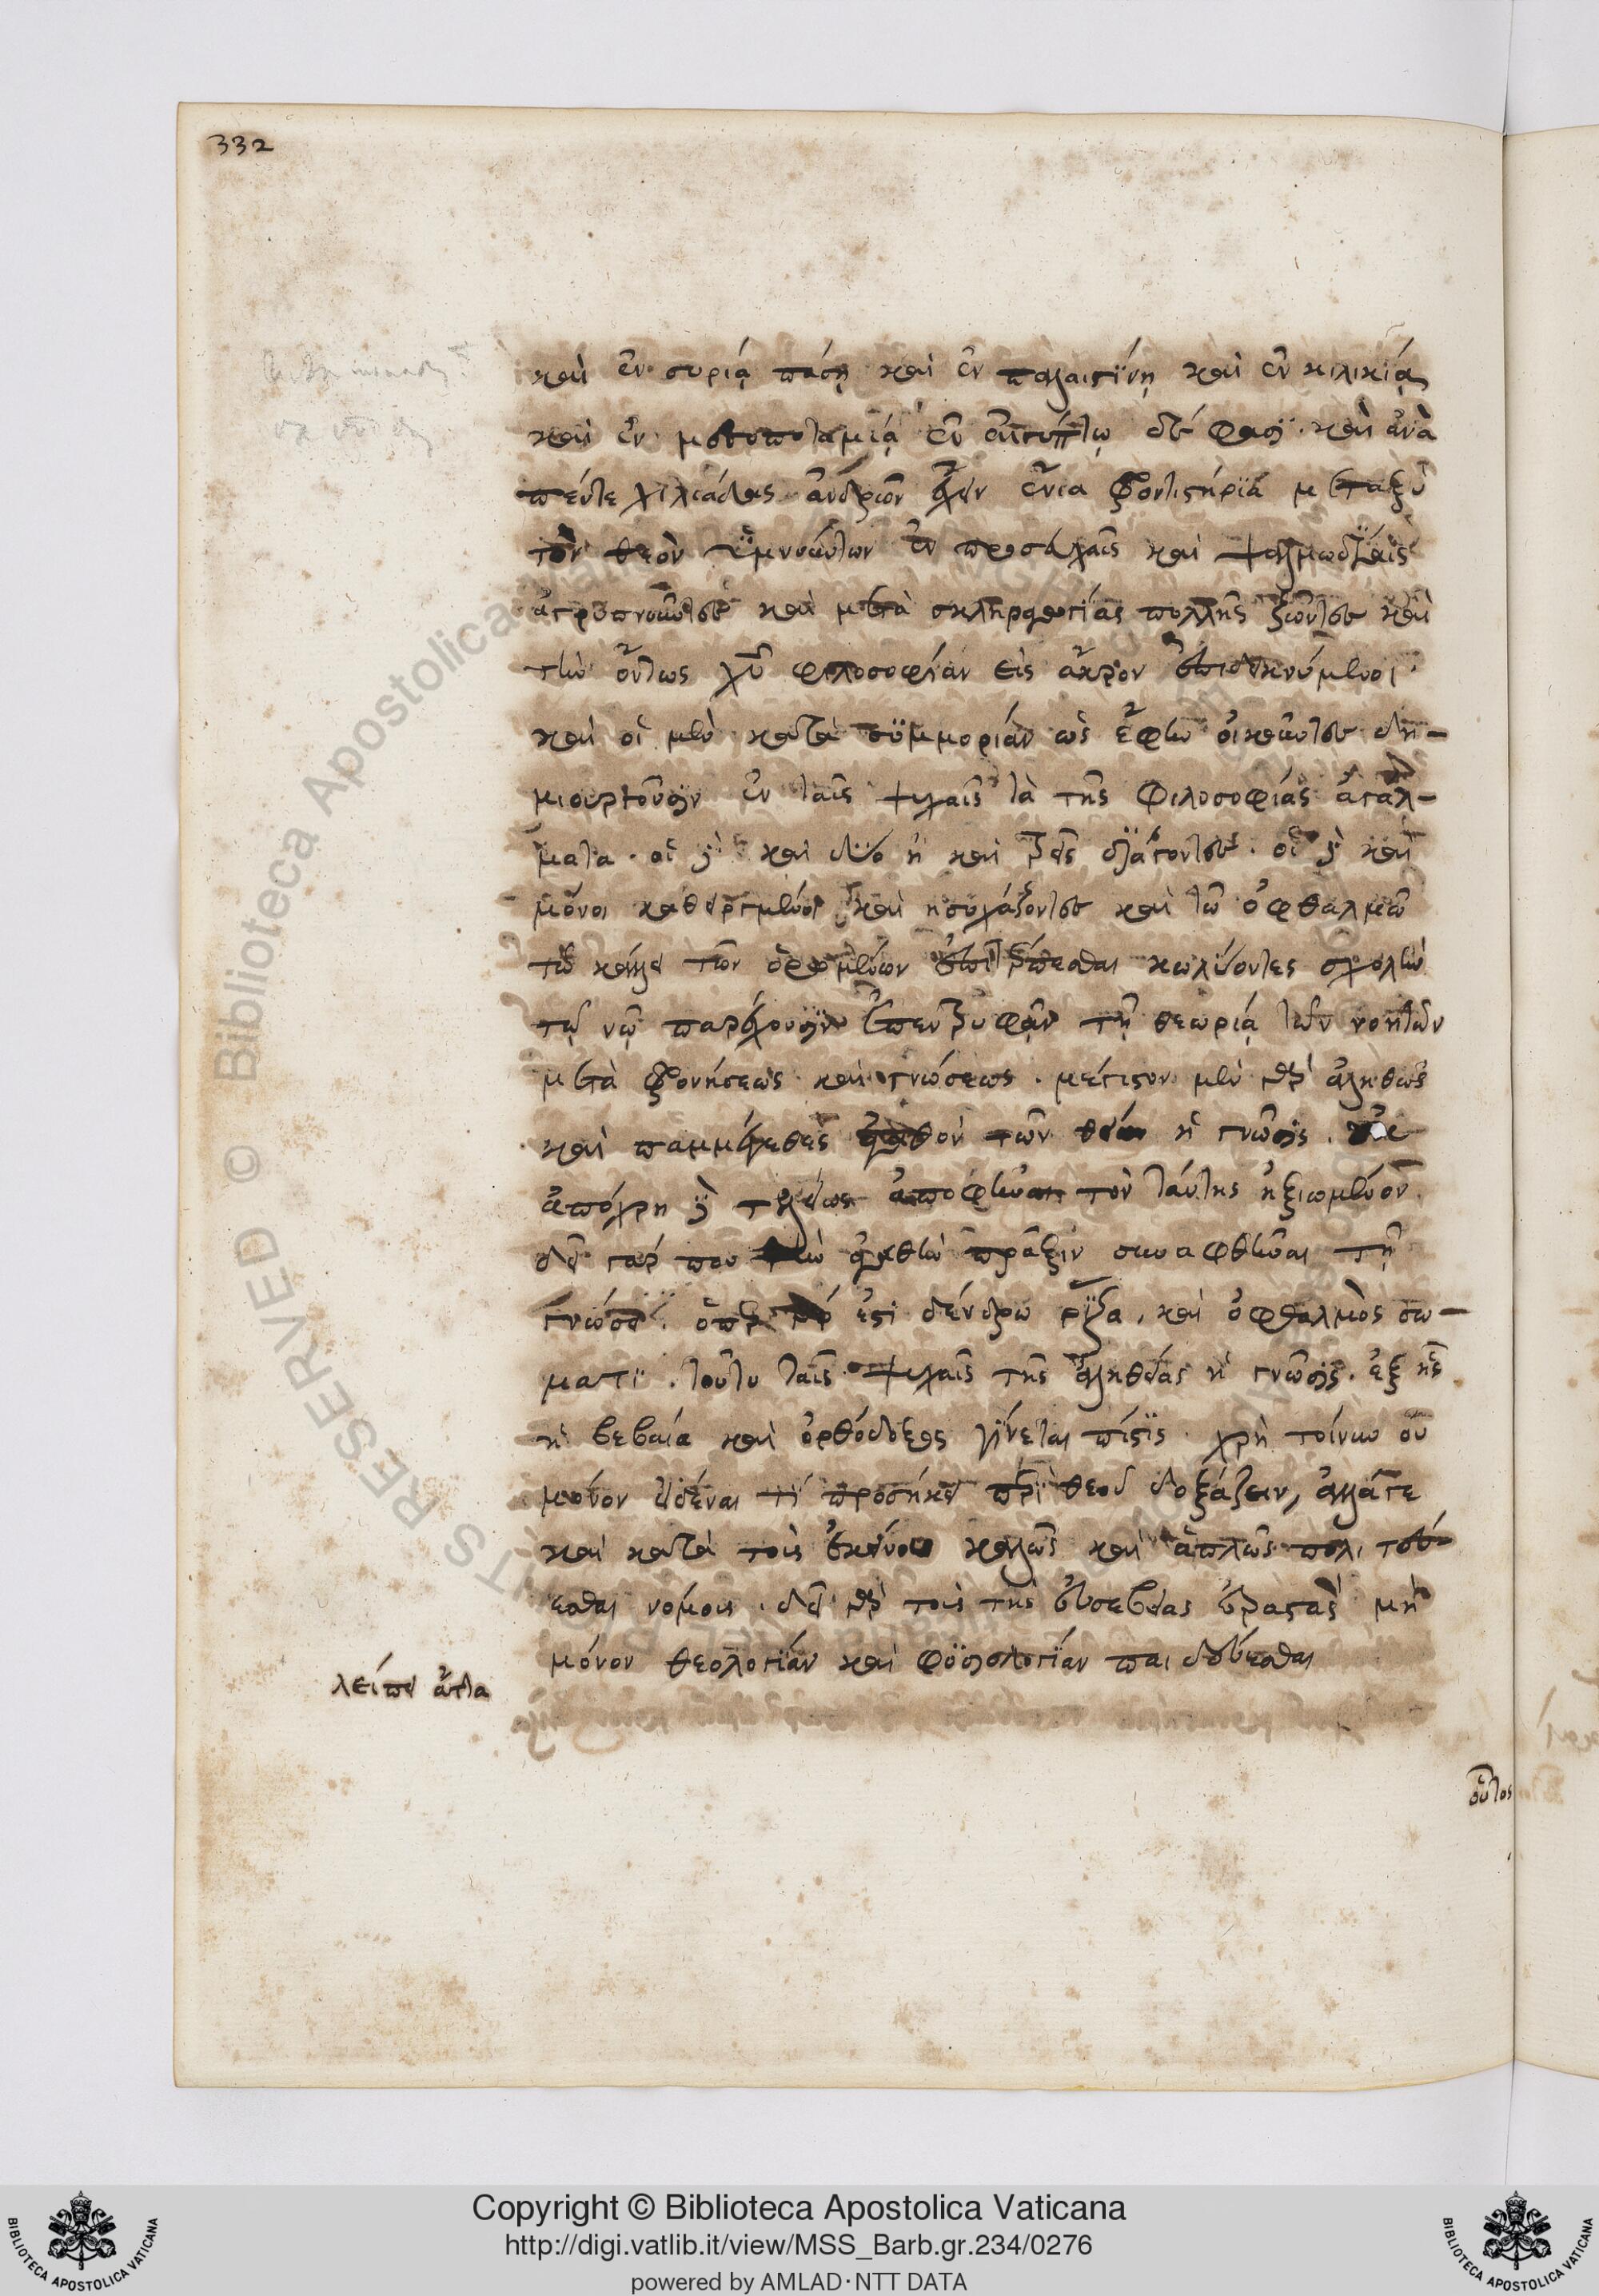 332
καὶ ἐν συρία πάση καὶ ἐν παλαιστίνη καὶ ἐν κιλικία
καὶ ἐν μεσοποταμία ἐν αἰγύπτω δέ φασι καὶ ἀνὰ
πέντε χιλιάδας ἀνδρῶν ἔχειν ἔνια φροντιστήρια μεταξὺ
τὸν θεὸν ὑμνούντων ἐν προσευχαῖς καὶ ψαλμωδίαις
ἀγρυπνοῦντες καὶ μετὰ σκληραγωγίας πολλῆς ζῶντες καὶ
τὴν ὄντως χῦ φιλοσοφίαν εἰς ἄκρον ἐπιδεικνύμενοι
καὶ οἱ μὲν κατὰ συμμορίαν ὡς ἔφην οἰκοῦντες δη-
μιουργοῦσιν ἐν ταῖς ψυχαῖς τὰ τῆς φιλοσοφίας ἀγάλ-
ματα. οἱ δὲ καὶ δύο ἢ καὶ τρεῖς διάγοντες. οἱ δὲ καὶ
μόνοι καθειργμένοι καὶ ἡσυχάζοντες καὶ τὼ ὀφθαλμὼ
τῶ κάλλει τῶν ὁρωμένων ἐπιτέρπεσθαι κωλύοντες σχολὴν
τῷ νῷ παρέχουσιν ἐπεντρυφᾶν τῇ θεωρίᾳ τῶν νοητῶν
μετὰ φρονήσεως καὶ γνώσεως. μέγιστον μὲν γὰρ ἀληθῶς
καὶ παμμέγεθες ἀγαθὸν τῶν θείων ἡ γνῶσις. οὐκ
ἀπόχρη δὲ τελείως ἀποφῆναι τὸν ταύτης ἠξιωμένον.
δεῖ γάρ που τὴν ἀγαθὴν πρᾶξιν συναφθῆναι τῇ
γνώσει. ὅπερ γάρ ἐστι δένδρω ρίζα, καὶ ὀφθαλμὸς σώ-
ματι. τοῦτο ταῖς ψυχαῖς τῆς ἀληθείας ἡ γνῶσις. ἐξ ἧς
ἡ βεβαία καὶ ὀρθόδοξος γίνεται πίστις. χρὴ τοίνυν οὐ
μόνον εἰδέναι τί προσήκει περὶ θεοῦ δοξάζειν, ἀλλά γε
καὶ κατὰ τοὺς ἐκείνου καλῶς καὶ ἁπλῶς πολιτεύ-
εσθαι νόμους. δεῖ γὰρ τοὺς τῆς εὐσεβείας ἐραστὰς μὴ
μόνον θεολογίαν καὶ φυσιολογίαν παιδεύεσθαι
λείπει
οὗτος
Copyright © Biblioteca Apostolica Vaticana
http://digi.vatlib.it/view/MSS_Barb.gr.234/0276
powered by AMLAD·NTT DATA